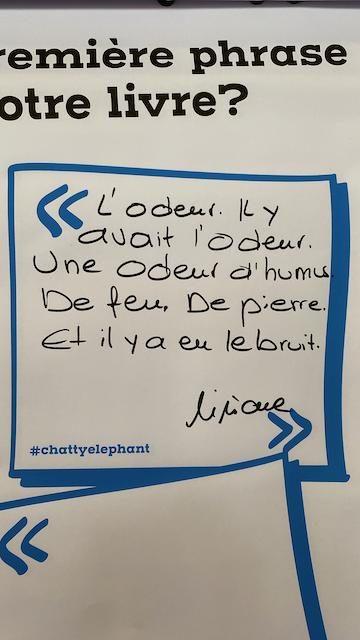 remière phrase
otre livre?
« L'odeur. Il y
avait l'odeur.
Une odeur d'humus.
De feu. De pierre.
Et il y a eu le bruit.
»
#chattyelephant
«